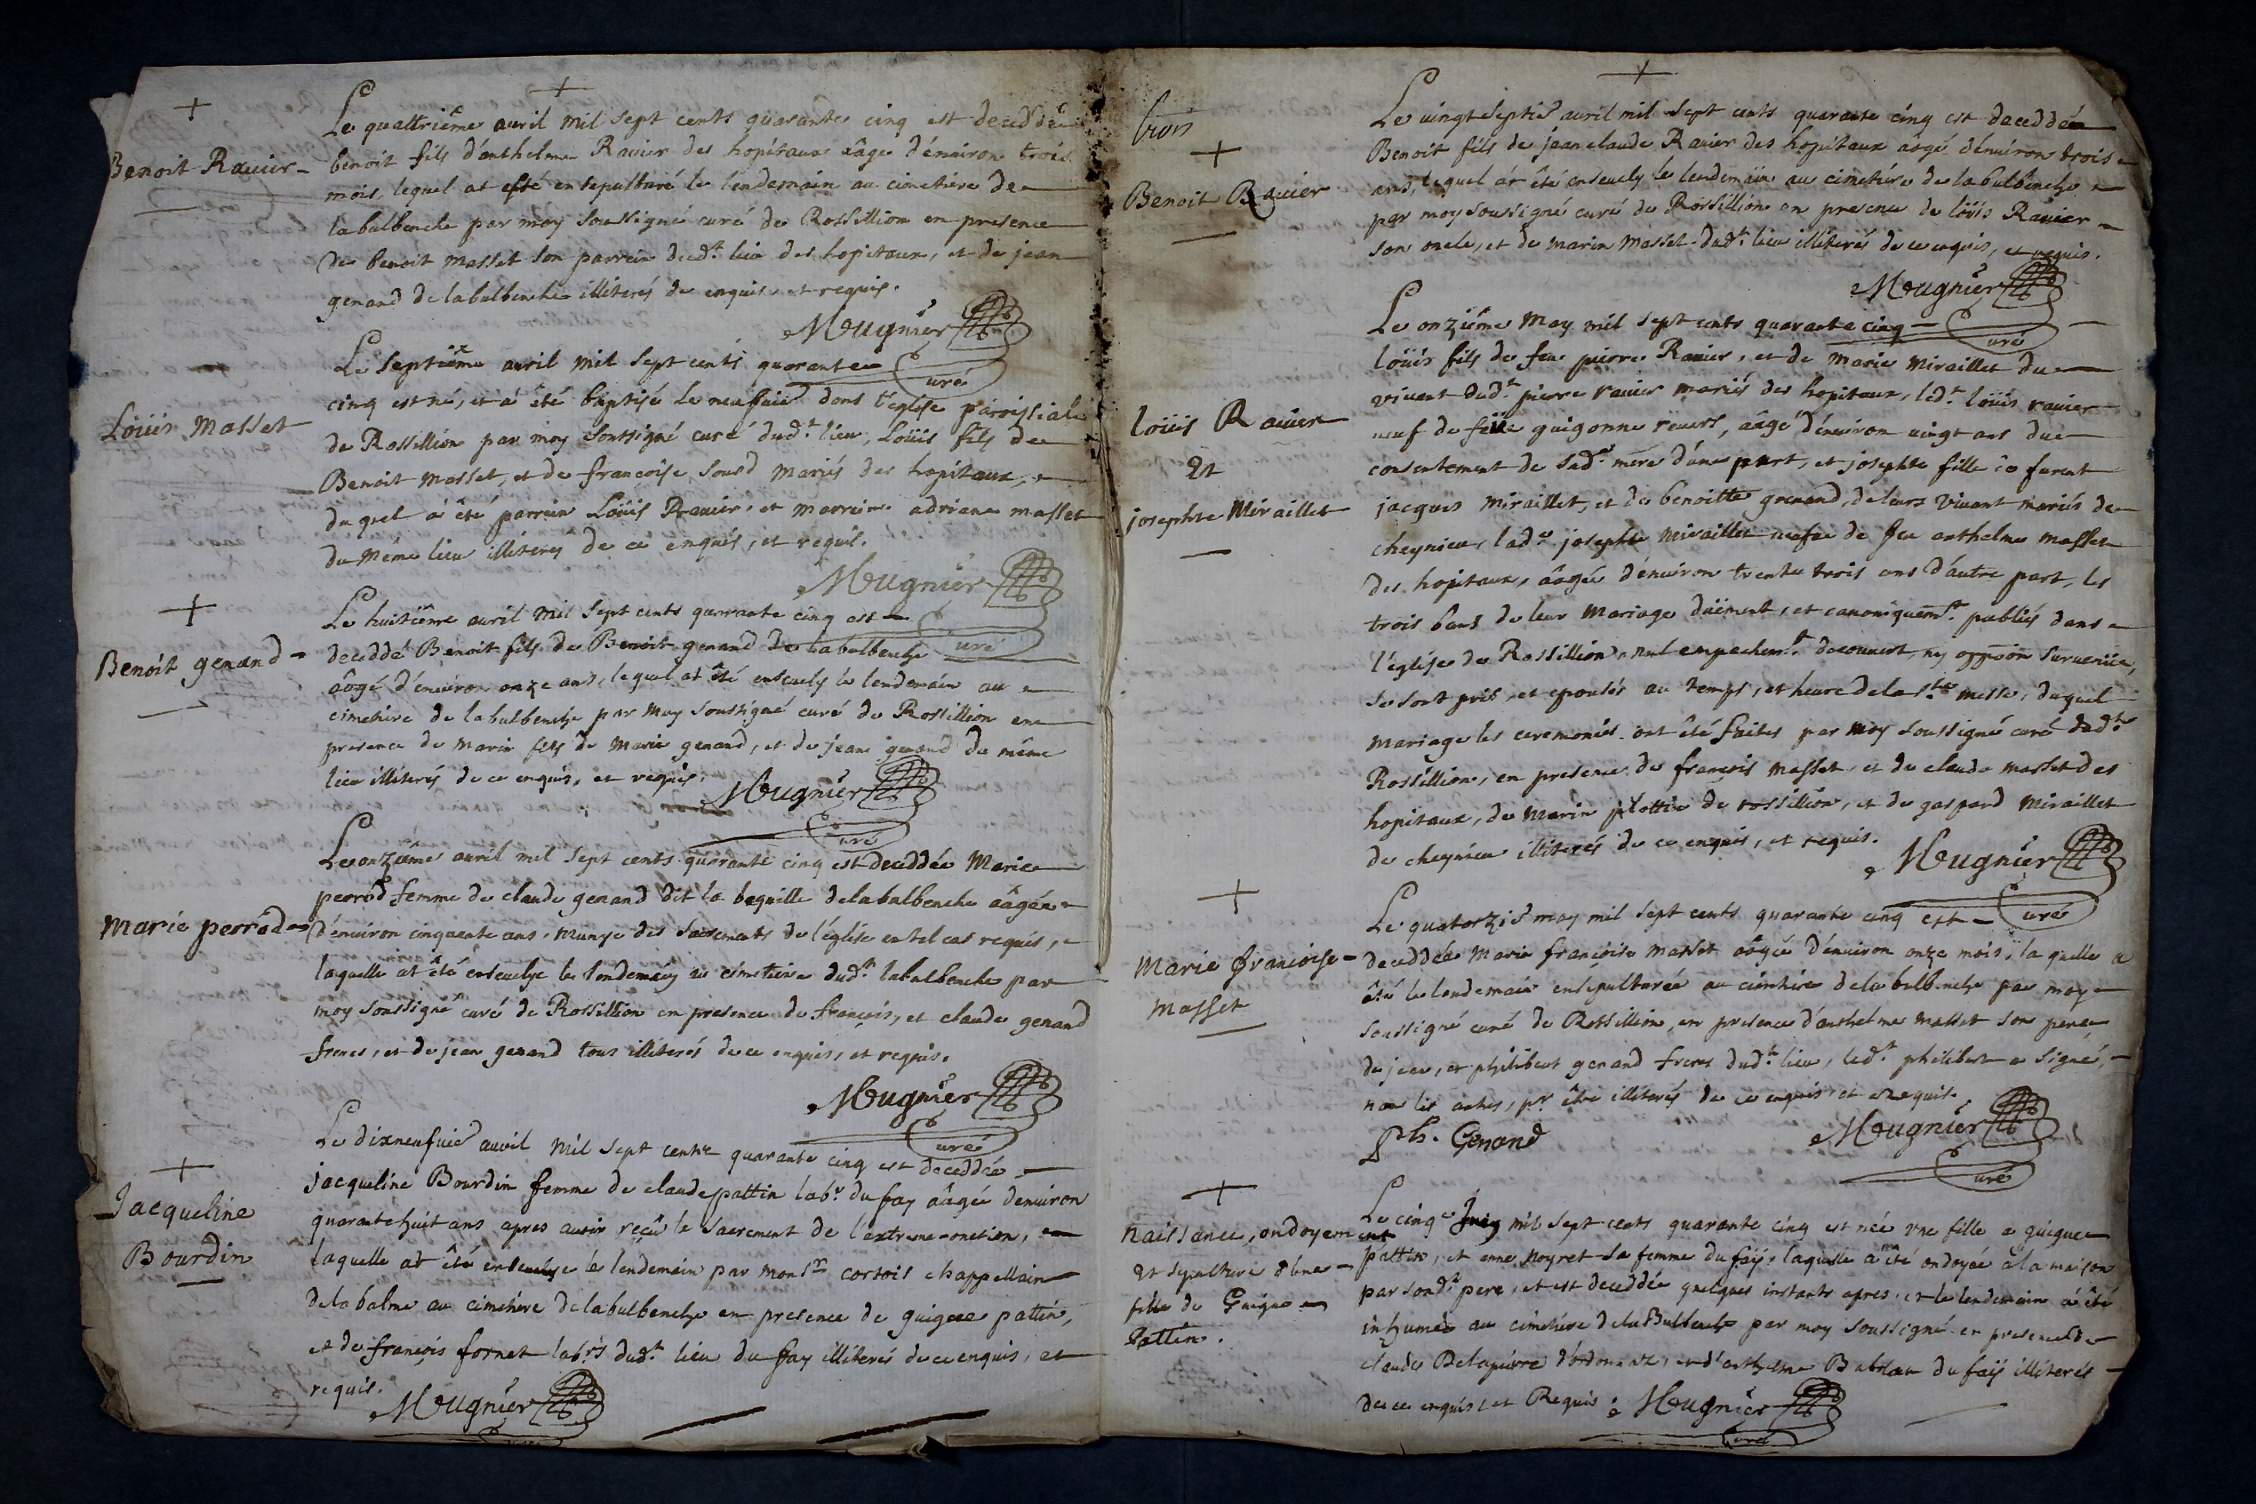 Le quattriême avril mil sept cents quarante cinq est deceddé
Benoit Ravier
benoit fils d'anthelme Ravier des hopitaux aâge d'environ trois
mois, lequel at esté ensepulturé le lendemain au cimetiere de
labalbenche par moy soussigné curé de Rossillion en presence
de benoit masset son parrein dud.t lieu des hopitaux, et de jean
genand de labalbenche illiterés de enquis et requis.
Mougnier
curé
Le septiême avril mil sept cents quarante
cinq est né, et à été baptisé le neufvie dans l'eglise paroissiale
Loüis Masset
de Rossillion par moy soussigné curé dud.t lieu, Loüis fils de
Benoit masset, et de francoise sourd mariés des hopitaux,
duquel à été parrain Loüis Ravier, et marraine adriane masset
du même lieu illiterés de ce enquis, et requis.
Mougnier
curé
Le huitième avril mil sept cents quarante cinq est
Benoit genand
deceddé Benoit fils de Benoit genand de labalbenche
aâgé d'environ onze ans, lequel at été ensevely le lendemain au
cimetiere de labalbenche par moy soussigné curé de Rossillion en
presence de marin fils de marie genand, et de jean genand du même
lieu illiterés de ce enquis, et requis.
Mougnier
curé
Le onziême avril mil sept cents quarante cinq est deceddée Marie
Marie perrod
perrod femme de claude genand dit la bequille de labalbenche aâgée
d'environ cinquante ans, munye des sacrements de l'église en tel cas requis,
laquelle at êté ensevelye le lendemain au cimetiere dud.t labalbenche par
moy soussigné curé de Rossillion en presence de francois, et claude genand
freres, et de jean genand tous illiterés de ce enquis, et requis.
Mougnier
curé
Le dixneufvie avril mil sept cents quarante cinq est deceddée
Jacqueline
Bourdin
jacqueline Bourdin femme de claude pattin lab.r du fay aâgée denviron
quarante huit ans apres avoir reçû le sacrement de l'extreme onction,
laquelle at êté ensevelye le lendemain par mons.r cortois chappellain
de la balme au cimetiere de labalbenche en presence de guigue pattin,
et de françois fornet lab.rs dud.t lieu du fay illiterés de ce enquis, et
requis.
Mougnier
trois
Le vingt septie avril mil sept cents quarante cinq est deceddé
Benoit Ravier
Benoit fils de jean claude Ravier des hopitaux aâgé d'environ trois
ans, lequel at êté ensevely le lendemain au cimetiere de labalbenche
par moy soussigné curé de Rossillion en presence de loüis Ravier
son oncle, et de marin masset dud.t lieu illiterés de ce enquis, et requis.
Mougnier
curé
Le onziême may mil sept cents quarante cinq
loüis fils de feu pierre Ravier, et de marie miraillet du
vivant dud.t pierre ravier mariés des hopitaux, led.t loüis ravier
Loüis Ravier
Et
josephte Miraillet
veuf de feüe guigonne revert, aâgé d'environ vingt ans du
consentement de sad.e mere d'une part, et josephte fille de furent
jacques miraillet, et de benoitte genand, de leurs vivant mariés de
cheynieu, lad.e josephte miraillet veufve de feu anthelme masset
des hopitaux, aâgée d'environ trente trois ans d'autre part, les
trois bans de leur mariage düement, et canoniquem.t publiés dans
l'église de Rossillion, nul empechem.t decouvert, ny opp̃on survenüe,
se sont pris, et epousés au temps, et heure de la s.te messe, duquel
mariage les ceremonies ont été faites par moy soussigné curé dud.t
Rossillion, en presence de françois masset, et de claude masset des
hopitaux, de marin plottin de rossillion, et de gaspard miraillet
de cheynieu illiterés de ce enquis, et requis.
Mougnier
curé
Le quatorzie may mil sept cents quarante cinq est
Marie françoise
Masset
deceddée marie françoise masset aâgée d'environ onze mois, la quelle a
êté le lendemain ensepulturée au cimetiere de labalbenche par moy
soussigné curé de Rossillion, en presence d'anthelme masset son pere,
de jean, et philibert genand freres dud.t lieu, led.t philibert a signé,
non les autres, p.r être illiterés de ce enquis et requis.
Ph. Genand
Mougnier
curé
Le cinq.e Juin mil sept cents quarante cinq est née vne fille a guigue
naissance, ondoyement
et sepulture d'une
fille de Guigue
Pattin.
pattin, et anne noyret sa femme du faÿ, laquelle a été ondoyée à la maison
par sond.t pere, et est deceddée quelques instants apres, et le lendemain à été
inhumée au cimetiere de la Balbenche par moy soussigné en presence de
claude Delapierre d'ordonnaz, et d'anthelme Babolan du faÿ illiterés
de ce enquis, et Requis.
Mougnier
curé